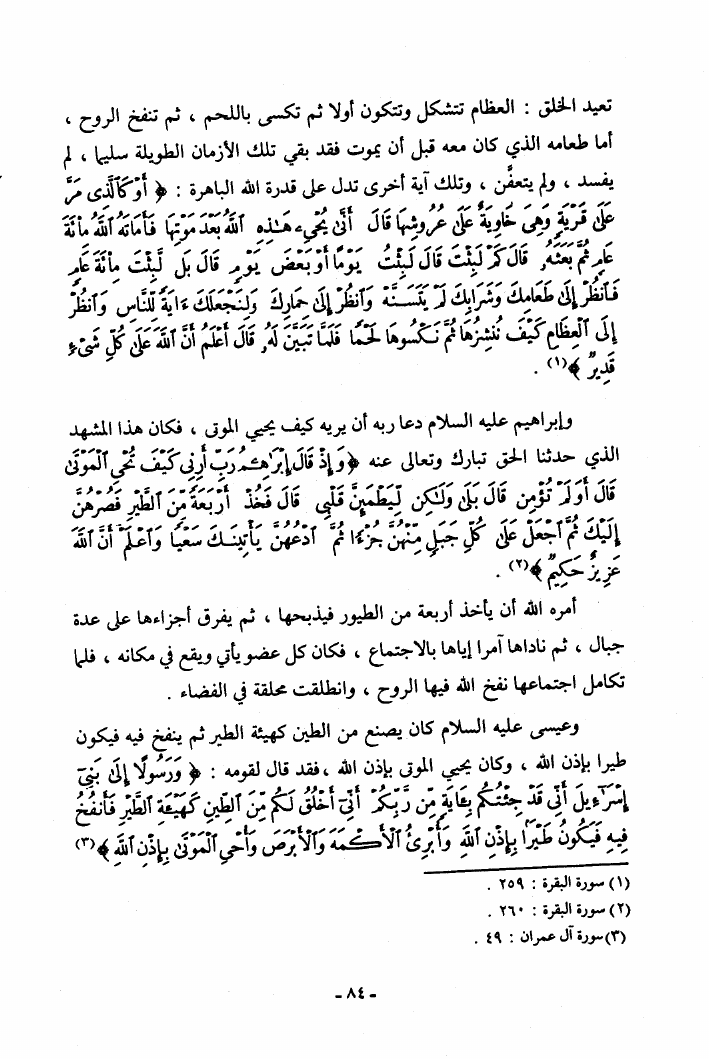 تعيد الخلق : العظام تتشكل وتتكون أولا ثم تكسى باللحم ، ثم تنفخ الروح ،
أما طعامه الذي كان معه قبل أن يموت فقد بقي تلك الأزمان الطويلة سليما ، لم
يفسد ، ولم يتعفَّن ، وتلك آية أخرى تدل على قدرة الله الباهرة : ﴿ أَوْ كَٱلَّذِى مَرَّ
عَلَىٰ قَرْيَةٍ وَهِىَ خَاوِيَةٌ عَلَىٰ عُرُوشِهَا قَالَ أَنَّىٰ يُحْىِۦ هَٰذِهِ ٱللَّهُ بَعْدَ مَوْتِهَا فَأَمَاتَهُ ٱللَّهُ مِا۟ئَةَ
عَامٍ ثُمَّ بَعَثَهُۥ قَالَ كَمْ لَبِثْتَ قَالَ لَبِثْتُ يَوْمًا أَوْ بَعْضَ يَوْمٍ قَالَ بَل لَّبِثْتَ مِا۟ئَةَ عَامٍ
فَٱنظُرْ إِلَىٰ طَعَامِكَ وَشَرَابِكَ لَمْ يَتَسَنَّهْ وَٱنظُرْ إِلَىٰ حِمَارِكَ وَلِنَجْعَلَكَ ءَايَةً لِّلنَّاسِ وَٱنظُرْ
إِلَى ٱلْعِظَامِ كَيْفَ نُنشِزُهَا ثُمَّ نَكْسُوهَا لَحْمًا فَلَمَّا تَبَيَّنَ لَهُۥ قَالَ أَعْلَمُ أَنَّ ٱللَّهَ عَلَىٰ كُلِّ شَىْءٍ
قَدِيرٌ ﴾(١) .
وإبراهيم عليه السلام دعا ربه أن يريه كيف يحيي الموتى ، فكان هذا المشهد
الذي حدثنا الحق تبارك وتعالى عنه ﴿وَإِذْ قَالَ إِبْرَٰهِـۧمُ رَبِّ أَرِنِى كَيْفَ تُحْىِ ٱلْمَوْتَىٰ
قَالَ أَوَلَمْ تُؤْمِن قَالَ بَلَىٰ وَلَٰكِن لِّيَطْمَئِنَّ قَلْبِى قَالَ فَخُذْ أَرْبَعَةً مِّنَ ٱلطَّيْرِ فَصُرْهُنَّ
إِلَيْكَ ثُمَّ ٱجْعَلْ عَلَىٰ كُلِّ جَبَلٍ مِّنْهُنَّ جُزْءًا ثُمَّ ٱدْعُهُنَّ يَأْتِينَكَ سَعْيًا وَٱعْلَمْ أَنَّ ٱللَّهَ
عَزِيزٌ حَكِيمٌ ﴾(٢) .
أمره الله أن يأخذ أربعة من الطيور فيذبحها ، ثم يفرق أجزاءها على عدة
جبال ، ثم ناداها آمرا إياها بالاجتماع ، فكان كل عضو يأتي ويقع في مكانه ، فلما
تكامل اجتماعها نفخ الله فيها الروح ، وانطلقت محلقة في الفضاء .
وعيسى عليه السلام كان يصنع من الطين كهيئة الطير ثم ينفخ فيه فيكون
طيرا بإذن الله ، وكان يحيي الموتى بإذن الله ،فقد قال لقومه : ﴿ وَرَسُولًا إِلَىٰ بَنِىٓ
إِسْرَٰٓءِيلَ أَنِّى قَدْ جِئْتُكُم بِـَٔايَةٍ مِّن رَّبِّكُمْ أَنِّىٓ أَخْلُقُ لَكُم مِّنَ ٱلطِّينِ كَهَيْـَٔةِ ٱلطَّيْرِ فَأَنفُخُ
فِيهِ فَيَكُونُ طَيْرًۢا بِإِذْنِ ٱللَّهِ وَأُبْرِئُ ٱلْأَكْمَهَ وَٱلْأَبْرَصَ وَأُحْىِ ٱلْمَوْتَىٰ بِإِذْنِ ٱللَّهِ ﴾(٣)
(١) سورة البقرة : ٢٥٩ .
(٢) سورة البقرة : ٢٦٠ .
(٣) سورة آل عمران : ٤٩ .
ـ ٨٤ ـ